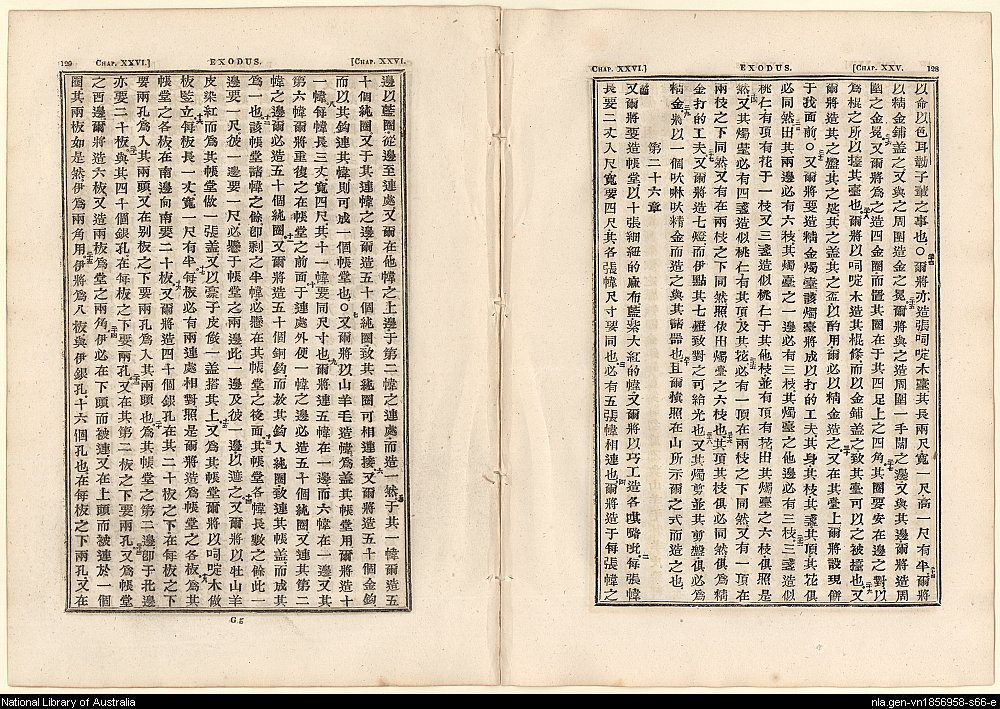 128
[CHAP. XXV.
EXODUS.
CHAP. XXVI.]
以命以色耳勒子輩之事也○爾將亦造張呵啶木臺其長兩尺寬一尺高一尺有半爾將
以精金鋪盖之又與之周圍造金之冕爾將與之造周圍一手闊之邊又與其邊爾將造周
圍之金冕又爾將為之造四金圈而置其圈在于其四足上之四角其圈要安在邊之對以
為棍之所以擡其臺也爾將以呵啶木造其棍條而以金鋪盖之致其臺可以之被擡也又
爾將造其之盤其之匙其之盖其之盃以酌用爾必以精金造之又在其臺上爾將設現餅
于我面前○又爾將要造精金燭臺該燭臺將成以打的工夫其身其枝其盞其頂其花俱
必同然出其兩邊必有六枝其燭臺之一邊必有三枝其燭臺之他邊必有三枝三盞造似
桃仁有項有花于一枝又三盞造似桃仁于其他枝並有項有花出其燭臺之六枝俱照是
然又其燭臺必有四盞造似桃仁有其頂及其花必有一頂在兩枝之下同然又有一頂在
兩枝之下同然又有在兩枝之下同然照依出燭臺之六枝也其頂其枝俱必同然俱為精
金打的工夫又爾將造七燈而伊點其七燈致對之可給光也又其燭剪並其剪盤俱必為
精金將以一個吠啉吠精金而造之與其諸器也且爾照在山所示爾之式而造之也
第二十六章
又爾將要造帳堂以十張細紐的麻布藍紫大紅的幃又爾將以巧工造各唭嚕吡每張幃
長要二丈八尺寬要四尺其各張幃尺寸要同也必有五張幃相連也爾將造于每張幃之
[CHAP. XXVI.
EXODUS.
CHAP. XXVI.]
129
邊以藍圈從邊至連處又爾在他幃之上邊于第二幃之連處而造一然于其一幃爾造五
十個純圈又于其連幃之邊爾造五十個純圈致其純圈可相連接又爾將造五十個金鈎
而以其鈎連其幃則可成一個帳堂也○又爾將以山羊毛造幃為盖其帳堂用爾將造十
一幃每幃長三丈寬四尺其十一幃要同尺寸也爾將連五幃在一邊而六幃在一邊又其
第六幃爾將重復之在帳堂之前面于連處外便一幃之邊必造五十個純圈又連其第二
幃之邊爾必造五十個純圈又爾將造五十個銅鈎而於其鈎入純圈致連其帳盖而成其
為一也該帳堂諸幃之餘卽剩之半幃必懸在其帳堂之後面其帳堂各幃長數之餘此一
邊要一尺彼一邊要一尺必懸于帳堂之兩邊此一邊及彼一邊以遮之又爾將以牡山羊
皮染紅而為其帳堂做一張盖又以獴子皮做一盖搭其上又為其帳堂爾將以呵啶木做
板竪立每板長一丈寬一尺有半每板必有兩連處相對照是爾將造為帳堂之各板為其
帳堂之各板在南邊向南要二十板又爾將造四千個銀孔在其二十板之下在每板之下
要兩孔為入其兩頭又在别板之下要兩孔為入其兩頭也為其帳堂之第二邊卽于北邊
亦要二十板與其四千個銀孔在每板之下要兩孔又在其第二板之下要兩孔又為帳堂
之西邊爾將造六板又造兩板為堂之兩角伊必在下頭而被連又在上頭而被連於一個
圈其兩板如是然伊為兩角用伊將為八板與伊銀孔十六個孔也在每板之下兩孔又在
G g
National Library of Australia
nla.gen-vn1856958-s66-e